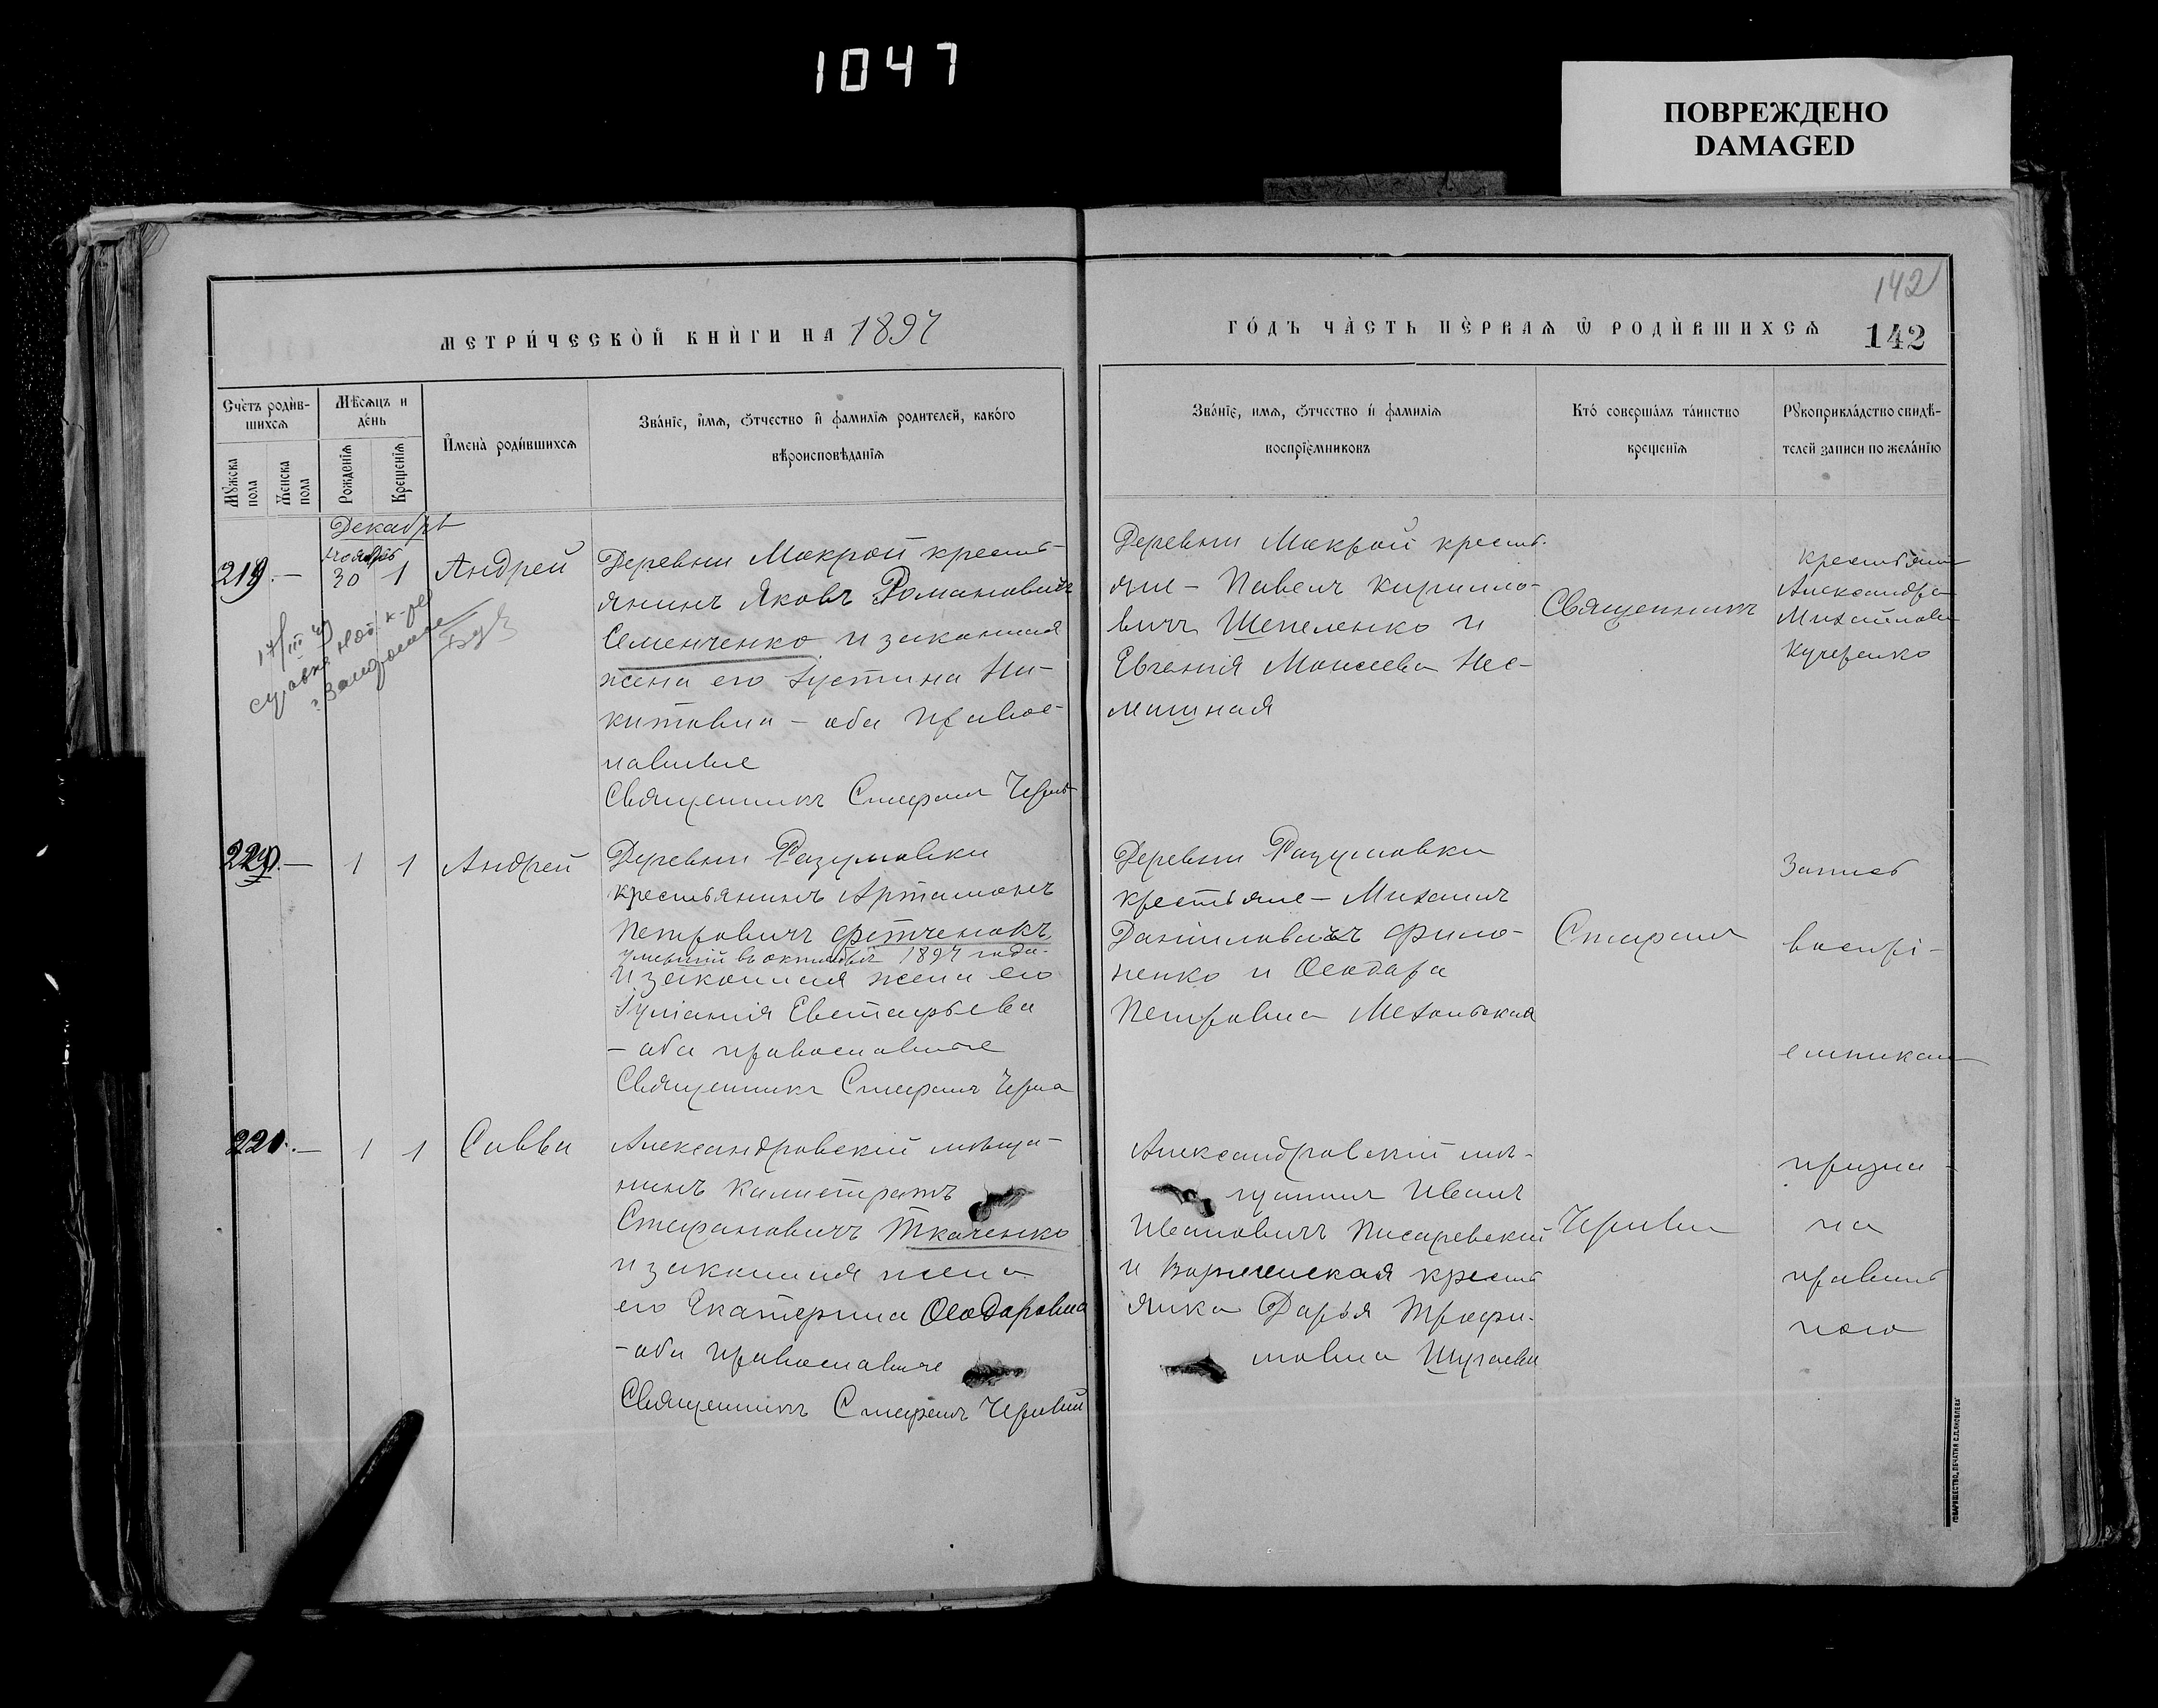 1047
ПОВРЕЖДЕНО
DAMAGED
142
МЕТРИ́ЧЕСКОЙ КНИ́ГИ НА 1897
ГО́ДЪ ЧА́СТЬ ПЕ́РВАѦ Ѡ РОДИ́ВШИХСѦ 142
Счетъ роди́в-
шихсѧ
Мѣсѧцъ и
де́нь
Мꙋжска
пола
Женска
пола
Рожденїѧ
Крещенїѧ
Имена̀ роди́вшихсѧ
Зва́нїе, и́мѧ, ѻтчество и фамилїѧ родителей, како́го
вѣроисповѣданїѧ
Зва́нїе, имѧ, ѻтчество и фамилїѧ
воспрїемниковъ
Кто́ совершалъ та́инство
крещенїѧ
Рꙋкоприкла́дство свидѣ-
телей записи по жела́нїю
Декабрь
Ноябрь
219. — 30 1 Андрей
Деревни Мокрой кресть-
янинъ Яковъ Романовичъ
Семенченко и законная
жена его Іустина Ни-
китовна – оба право-
лавные
Священникъ Стефанъ
Деревни Мокрой кресть-
яне – Павелъ Кирилло-
вичъ Шепеленко и
Евгенія Моисеева Нес-
машная
Священникъ
крестьянинъ
Александръ
Михайловъ
Кучеренко
17/III
справка
г. Запорожье
220. — 1 1 Андрей
Деревни Разумовки
крестьянинъ Артамонъ
Петровичъ Фетченокъ
умершій въ октябрѣ 1897 года.
и законная жена его
Іуліанія Евстафьева
– оба православные
Священникъ Стефанъ
Деревни Разумовки
крестьяне – Михаилъ
Даніиловичъ Фило-
ненко и Ѳеодора
Петровна
Стефанъ
Запись
воспрі-
емникам
221. — 1 1 Савва
Александровскій мѣща-
нинъ Калистратъ
Стефановичъ Ткаченко
и законная жена
его Екатерина Ѳеодоровна
– оба православные
Священникъ Стефанъ Червый
Александровскій мѣ-
щанинъ Иванъ
Ивановичъ Писаревскій
и крестъ
янка Дарья Трофи-
мовна
призна-
на
правиль
ною
ТОВАРИЩЕСТВО „ПЕЧАТНЯ С.П.ЯКОВЛЕВА"